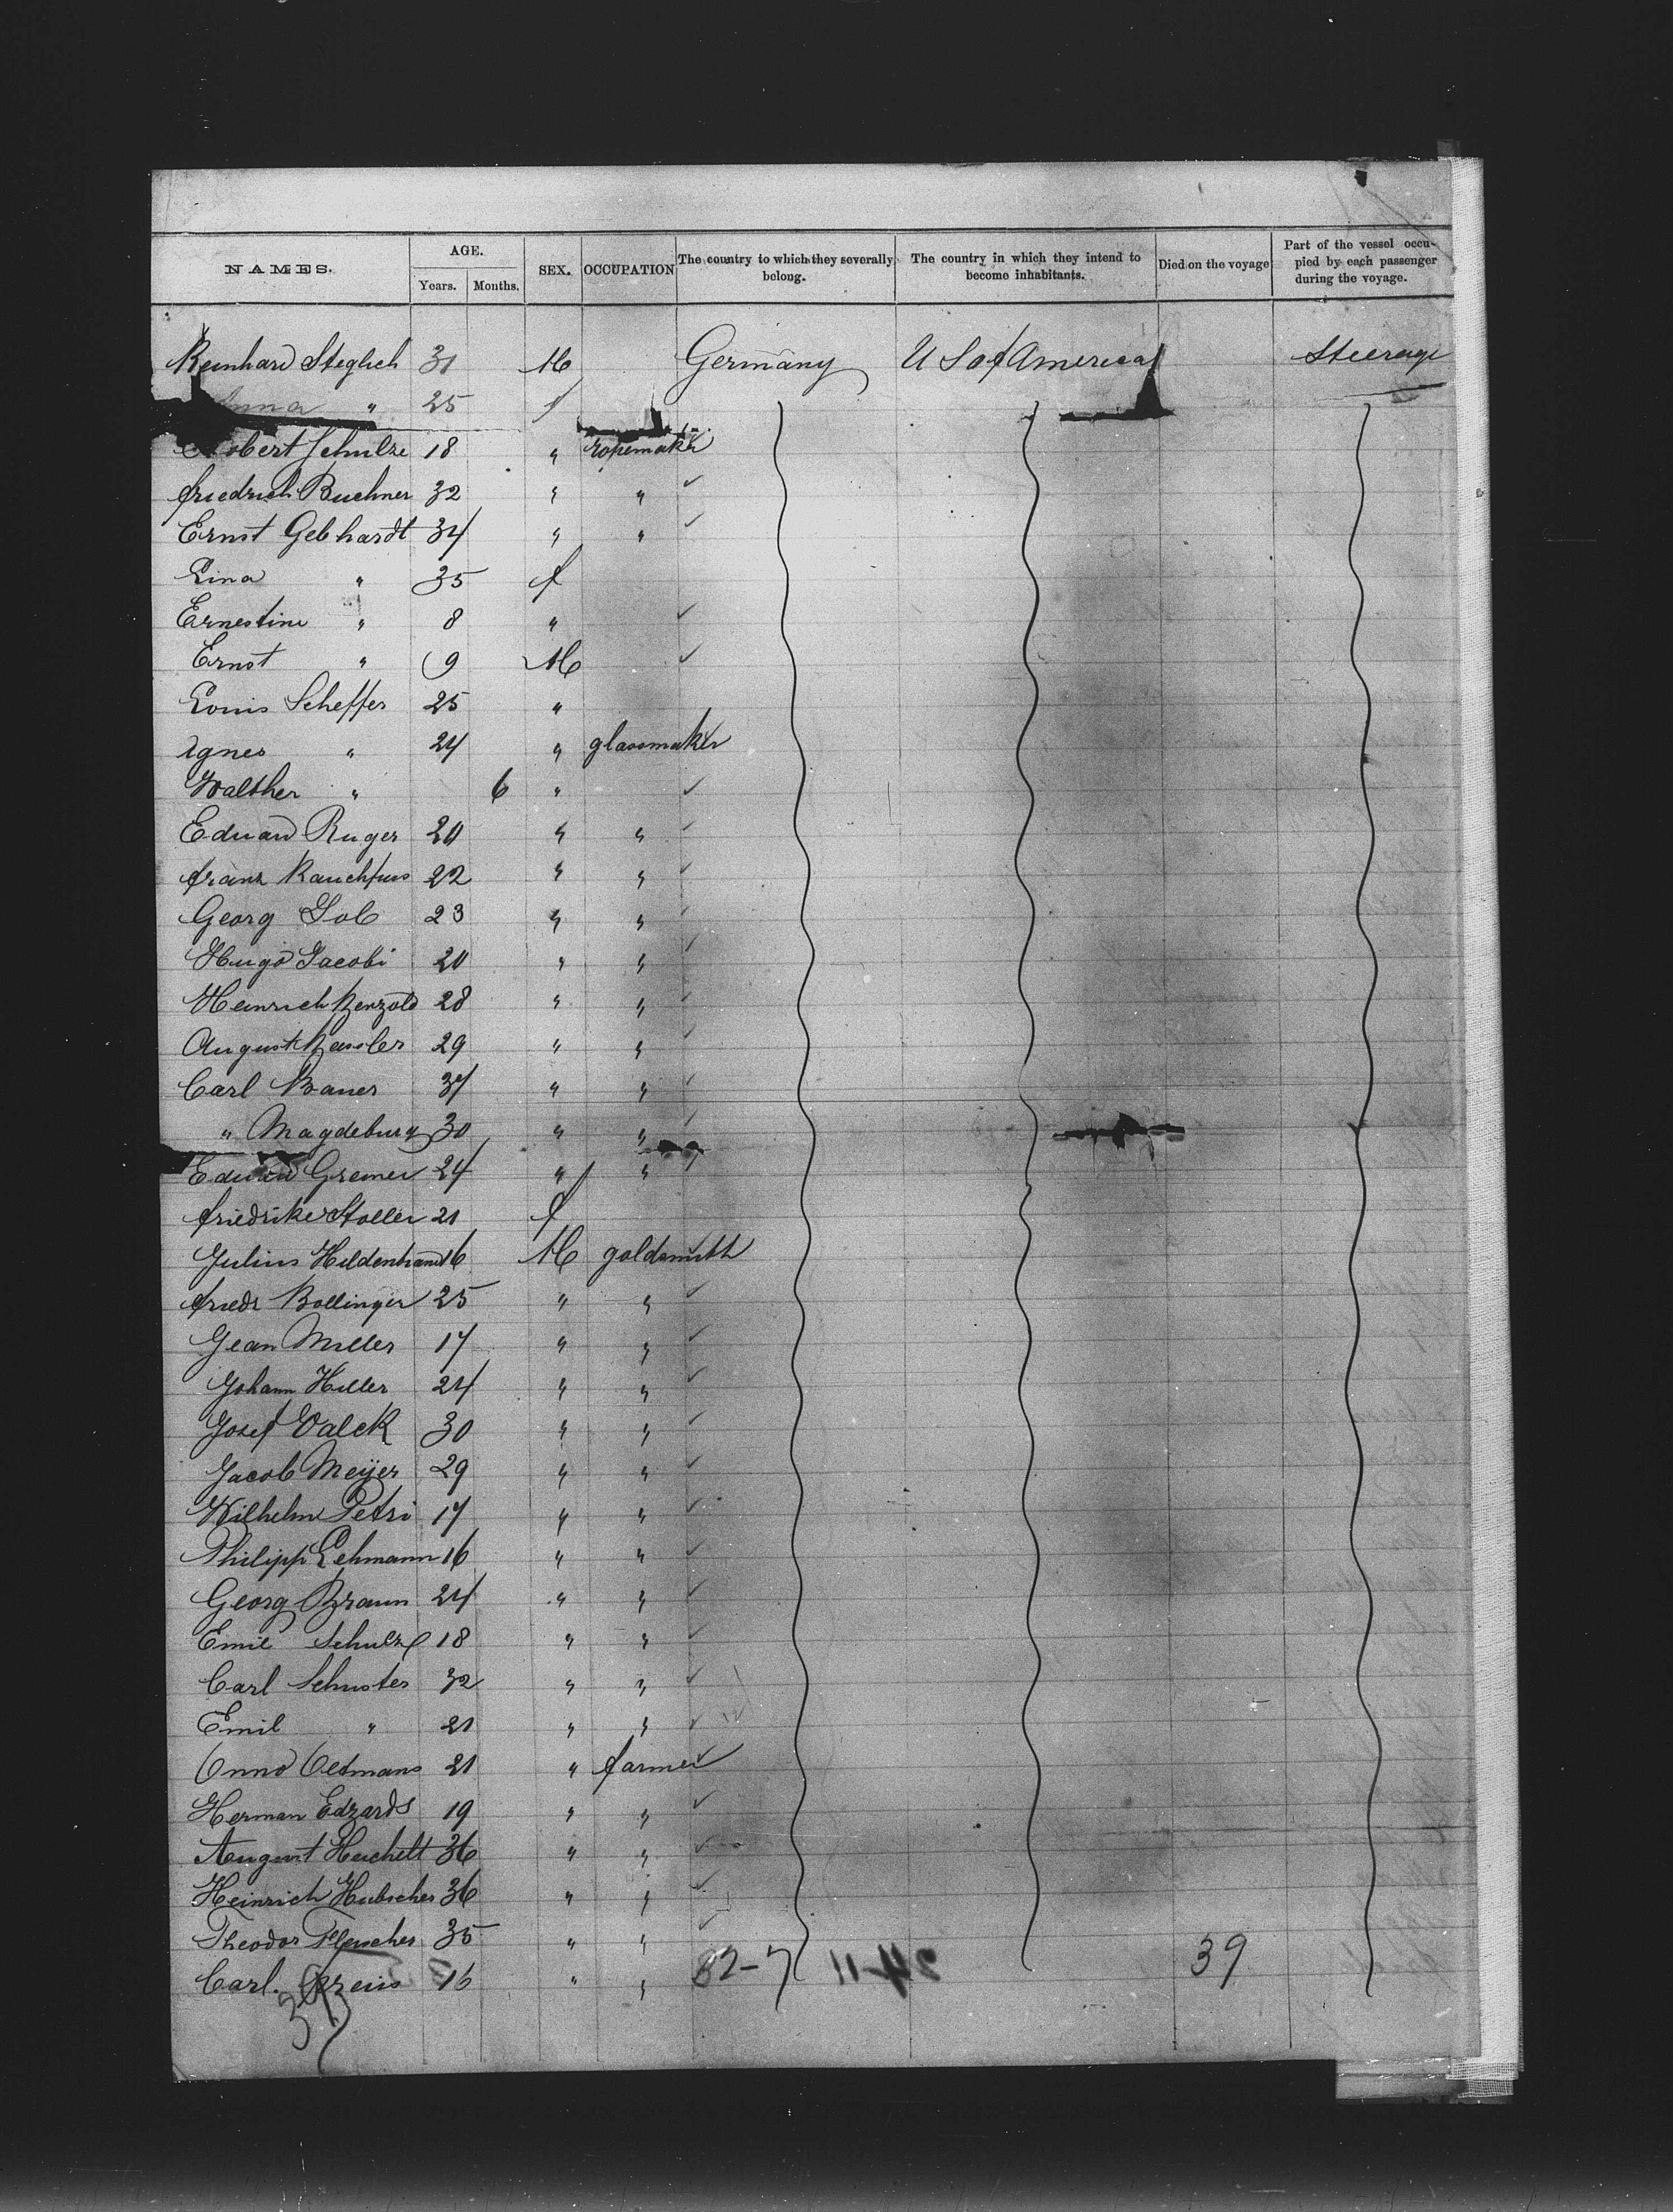 NAMES. AGE. Years. Months. SEX. OCCUPATION The country to which they severally belong. The country in which they intend to become inhabitants. Died on the voyage Part of the vessel occupied by each passenger during the voyage.
Reinhard Steglich 31 M Germany U S of America Steerage
Anna " 25 f
Robert Schulze 18 " ropemaker
friedrich Buchner 32 " "
Ernst Gebhardt 34 " "
Lina " 35 f
Ernestine " 8 "
Ernst " 9 M
Louis Scheffer 25 "
Agnes " 24 " glassmaker
Walther " 6 "
Eduard Ruger 20 " "
franz Rauchfuss 22 " "
Georg 23 " "
Hugo Jacobi 20 " "
Heinrich 28 " "
August 29 " "
Carl Bauer 37 " "
" Magdeburg 30 " "
Eduard Greiner 24 " "
friedrike Stoller 21 f
Julius Hildenbrand 16 M goldsmith
friedr Bollinger 25 " "
Jean Miller 17 " "
Johann Hiller 24 " "
Josef Valck 30 " "
Jacob Meijer 29 " "
Wilhelm Petri 17 " "
Philipp Lehmann 16 " "
Georg Braun 24 " "
Emil Schulze 18 " "
Carl Schuster 32 " "
Emil " 21 " "
Onno Oltmans 21 " farmer
Herman Edzards 19 " "
August Huchelt 36 " "
Heinrich Hubscher 36 " "
Theodor Fleischer 35 " "
Carl 16 " " 32-7 39
39